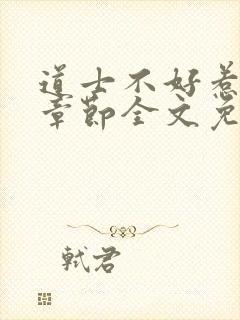 道士不好惹
章节全文免
轼君